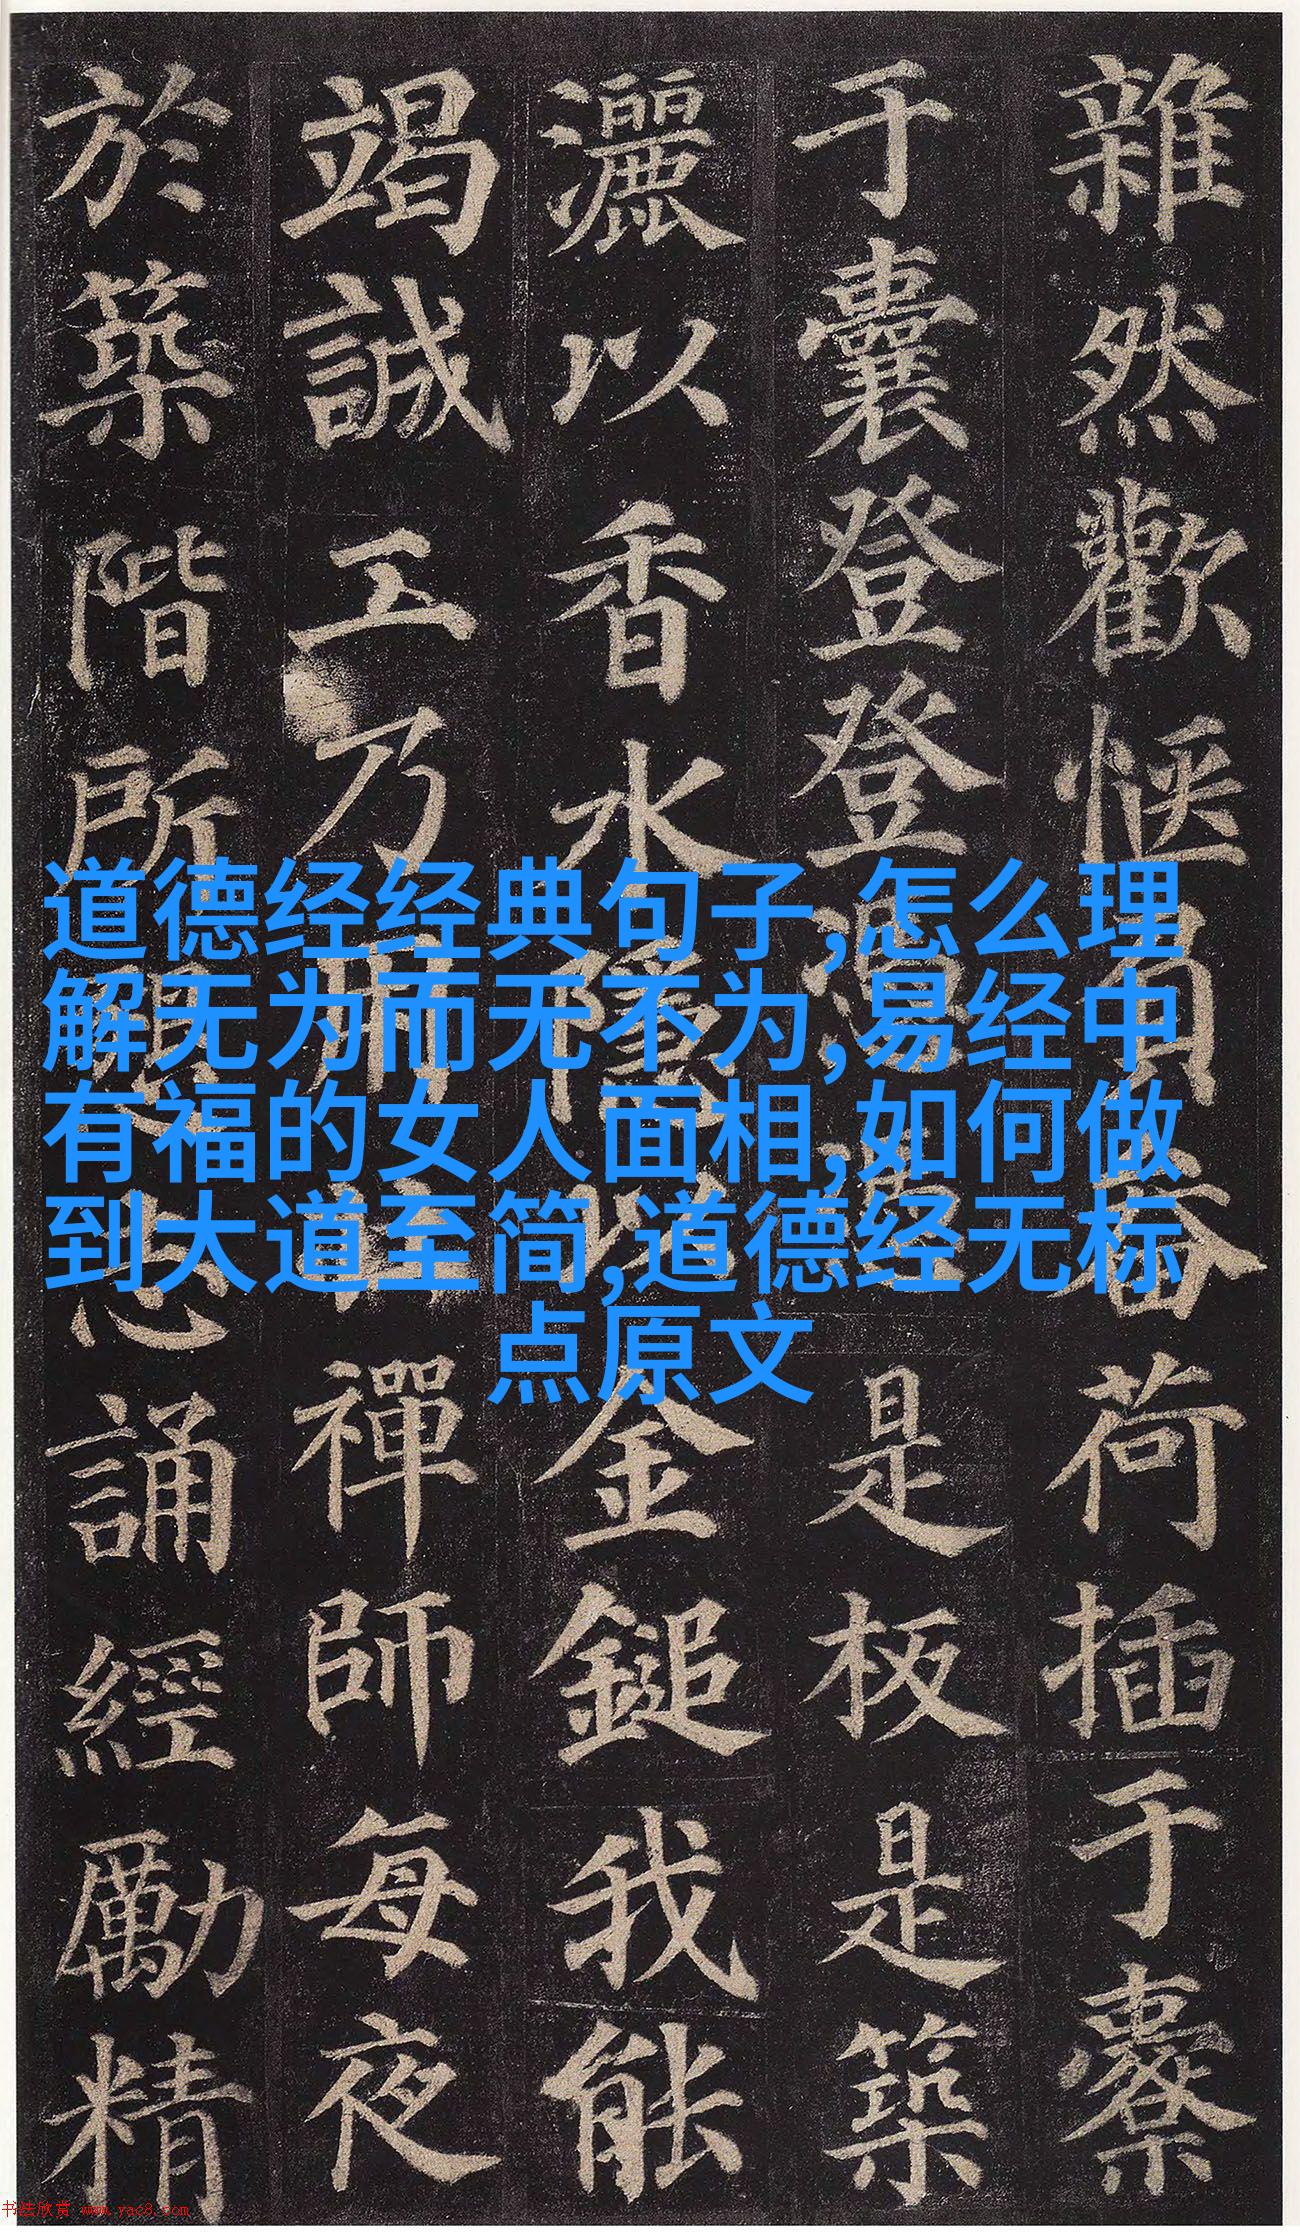 雜然歡愜負畚荷插于橐
于囊登登憑憑是板是築
灑以香水隱以金鎚我能
竭誠工乃用壯禪師每夜
於築階所懇志誦經勵精
道德经经典句子,怎么理
解无为而无不为,易经中
有福的女人面相,如何做
到大道至简,道德经无标
点原文
书法欣赏 www.yac8.com